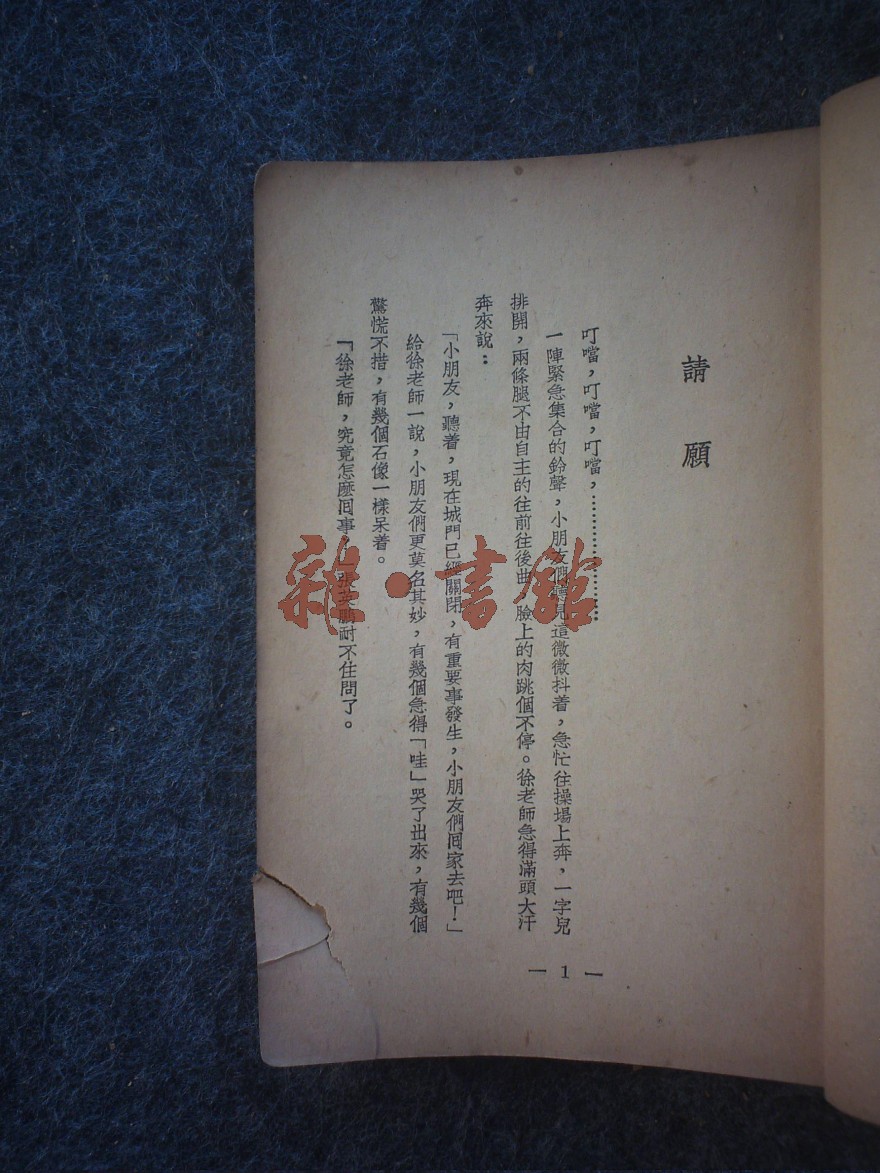 請願
叮噹，叮噹，叮噹，……………………
一陣緊急集合的鈴聲，小朋友們聽見這微微抖着，急忙往操場上奔，一字兒
排開，兩條腿不由自主的往前往後曲，臉上的肉跳個不停。徐老師急得滿頭大汗
奔來說：
「小朋友，聽着，現在城門已經關閉，有重要事發生，小朋友們囘家去吧！」
給徐老師一說，小朋友們更莫名其妙，有幾個急得「哇」哭了出來，有幾個
驚慌不措，有幾個石像一樣呆着。
「徐老師，究竟怎麼囘事 耐不住問了。
— 1 —
雜·書館